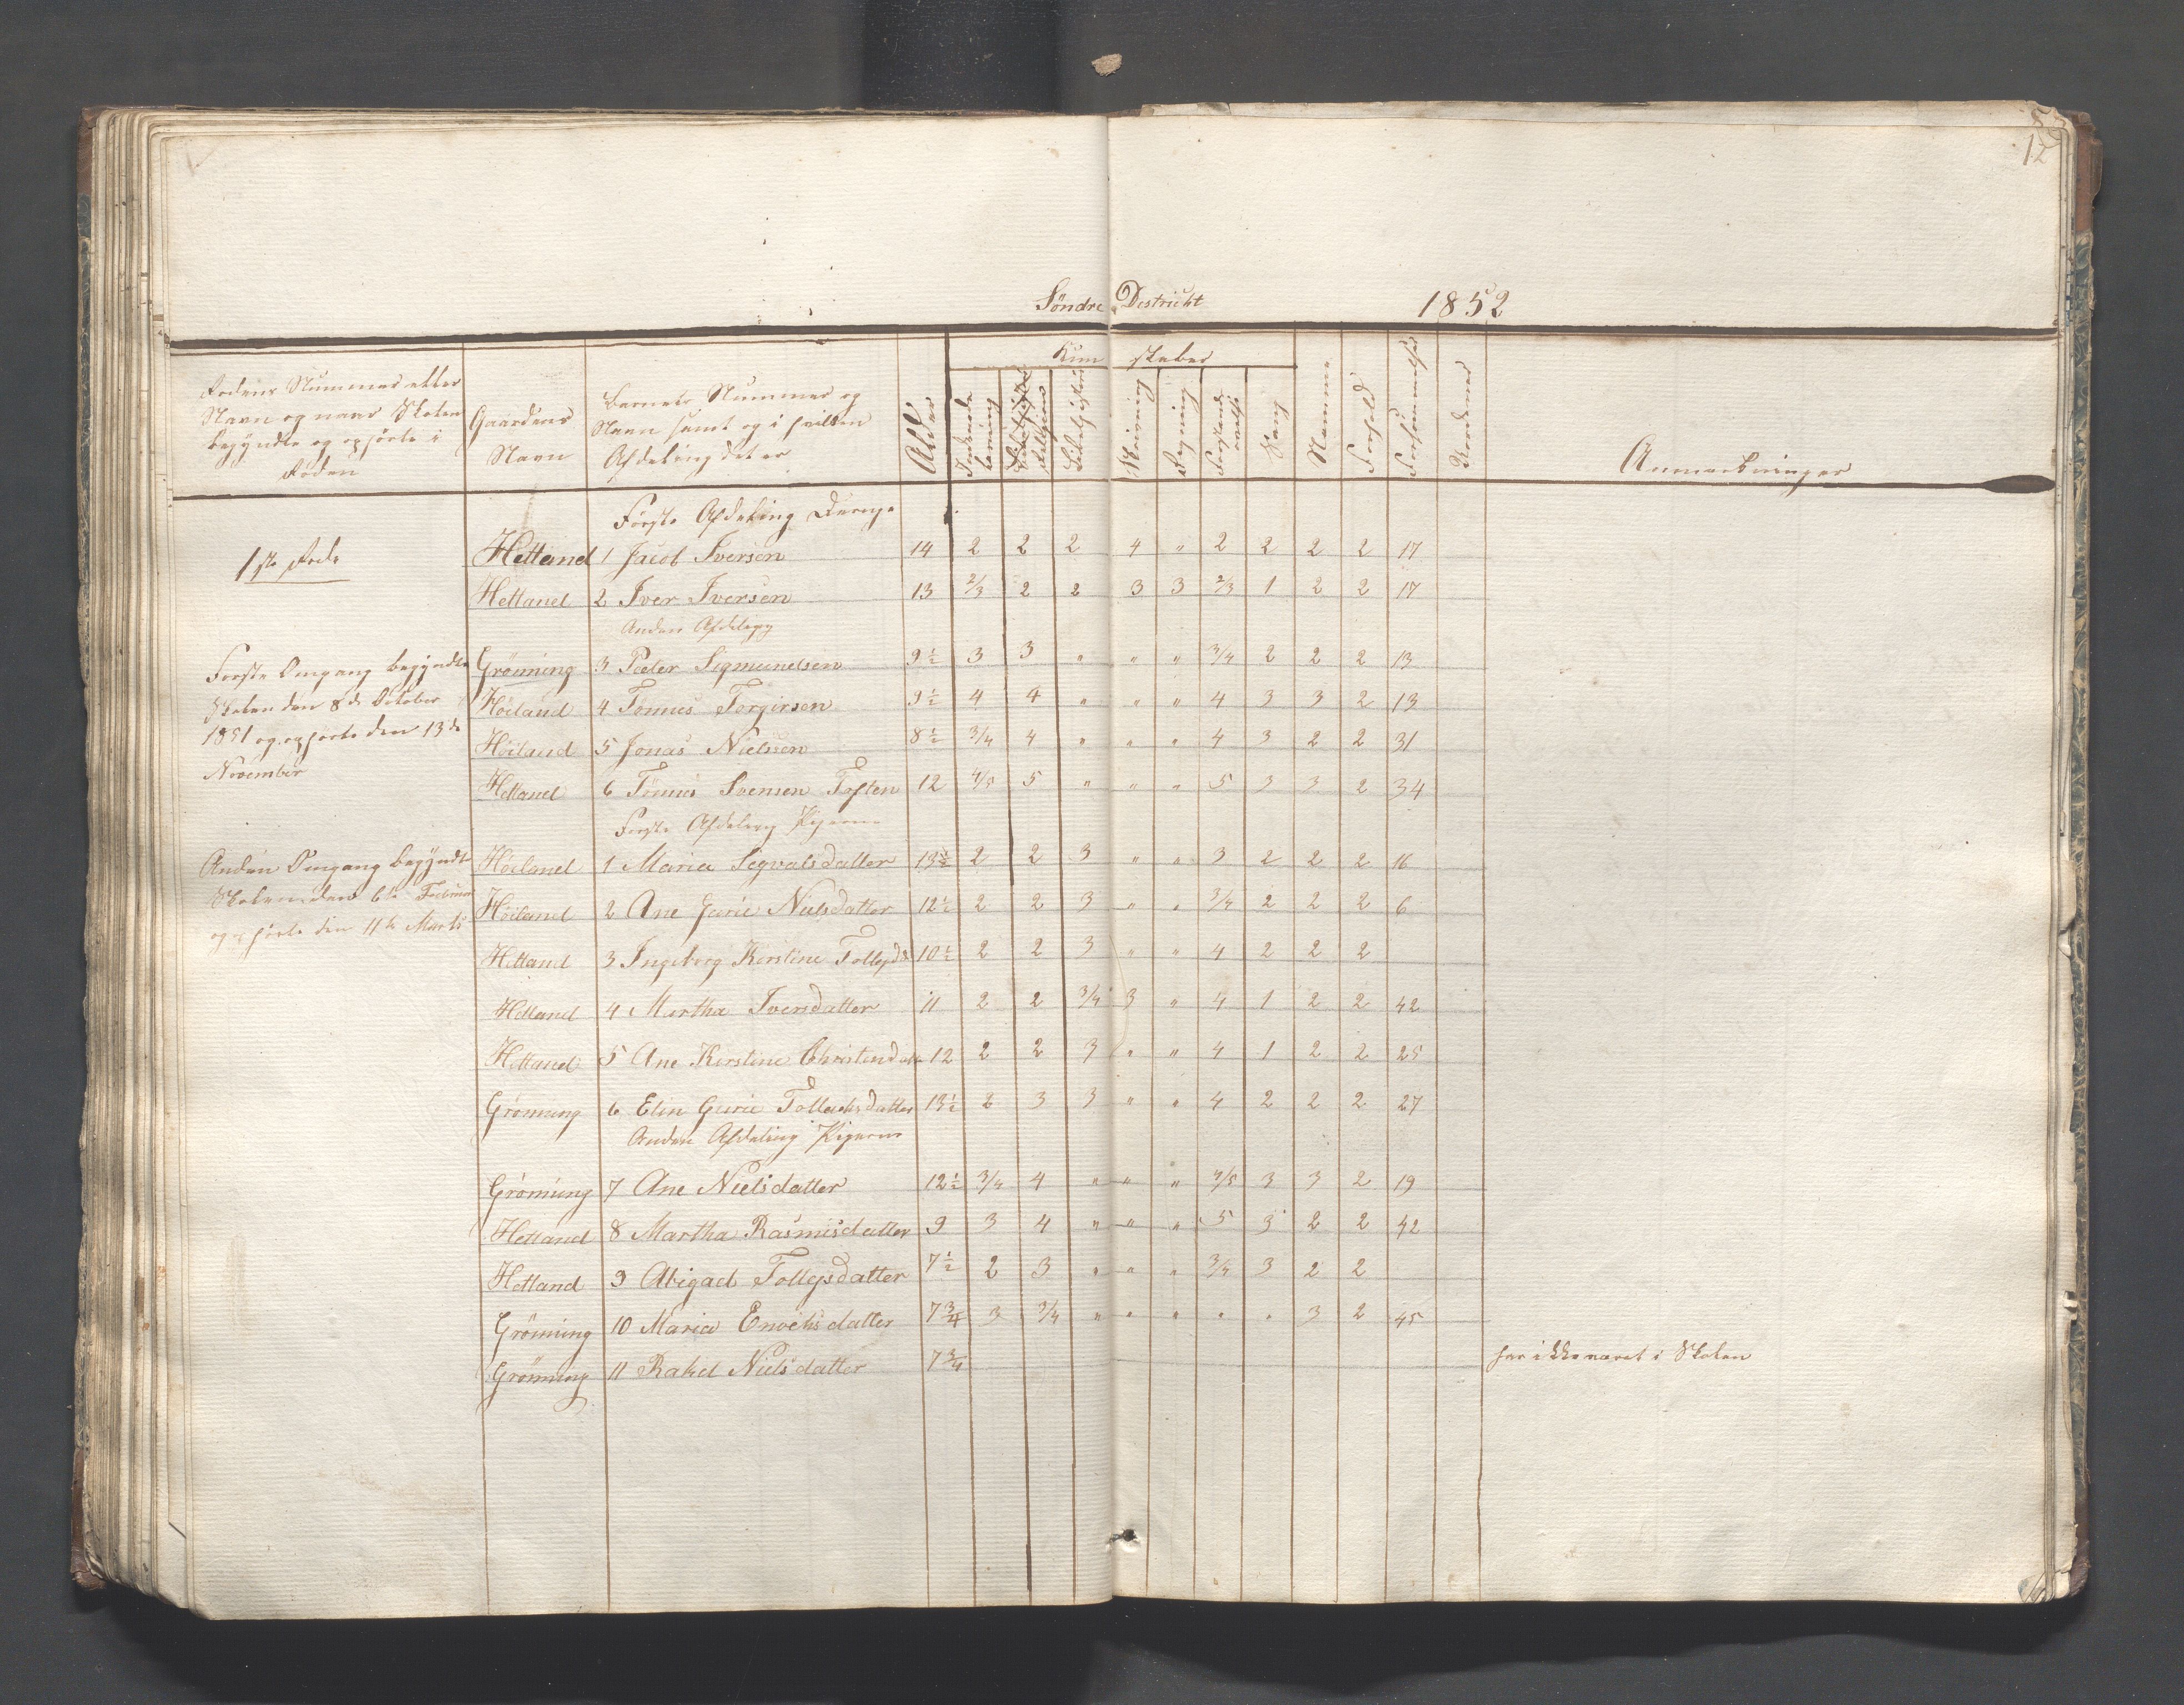 12
Söndre Destrickt 1852
Kundskaber
Rodens Nummer eller
Navn og naar Skolen
begyndte og ophörte i
Roden
Gaardens
Navn
Barnets Nummer og
Navn samt og i hvilken
Afdeling det er
Alder
Indenads
læsning
Religion
Bibelhistorie
Skrivning
Regning
Forstands
øvelse
Sang
Nemme
Forhold
Forsømmelser
Anmærkninger
Første Afdeling Drenge
1ste Rode
Hetland 1 Jacob Iversen 14 2 2 2 4 " 2 2 2 2 17
Hetland 2 Iver Iversen 13 2/3 2 2 3 3 2/3 1 2 2 17
Anden Afdeling
Første Omgang begyndte
Skolen den 8de October
1851 og ophørte den 13de
November
Grönning 3 Peder Sigmundsen 9½ 3 3 " " " 3/4 2 2 2 13
Höiland 4 Tönnes Torgirsen 9½ 4 4 " " " 4 3 3 2 13
Höiland 5 Jonas Nielsen 8½ 3/4 4 " " " 4 3 2 2 31
Hetland 6 Tönnes Svensen Toften 12 4/5 5 " " " 5 3 3 2 34
Første Afdeling Pigerne
Anden Omgang begyndte
Skolen den 6te Februar
og ophørte den 11te Marts
Höiland 1 Maria Sigvalsdatter 13½ 2 2 3 " " 3 2 2 2 16
Höiland 2 Ane Gurie Nielsdatter 12½ 2 2 3 " " 3/4 2 2 2 6
Hetland 3 Ingeborg Kirstine Tollefsd 10½ 2 2 3 " " 4 2 2 2
Hetland 4 Martha Iversdatter 11 2 2 3/4 3 " 4 1 2 2 42
Hetland 5 Ane Kirstine Christendatter 12 2 2 3 " " 4 1 2 2 25
Grönning 6 Elin Gurie Tollachsdatter 13½ 2 3 3 " " 4 2 2 2 27
Anden Afdeling Pigerne
Grönning 7 Ane Nielsdatter 12½ 3/4 4 " " " 4/5 3 3 2 19
Hetland 8 Martha Rasmusdatter 9 3 4 " " " 5 3 2 2 42
Hetland 9 Abigael Tollefsdatter 7½ 2 3 " " " 3/4 3 2 2
Grönning 10 Maria Enochsdatter 7¾ 3 3/4 " " " " " 3 2 45
Grönning 11 Rakel Nielsdatter 7¾ har ikke været i Skolen